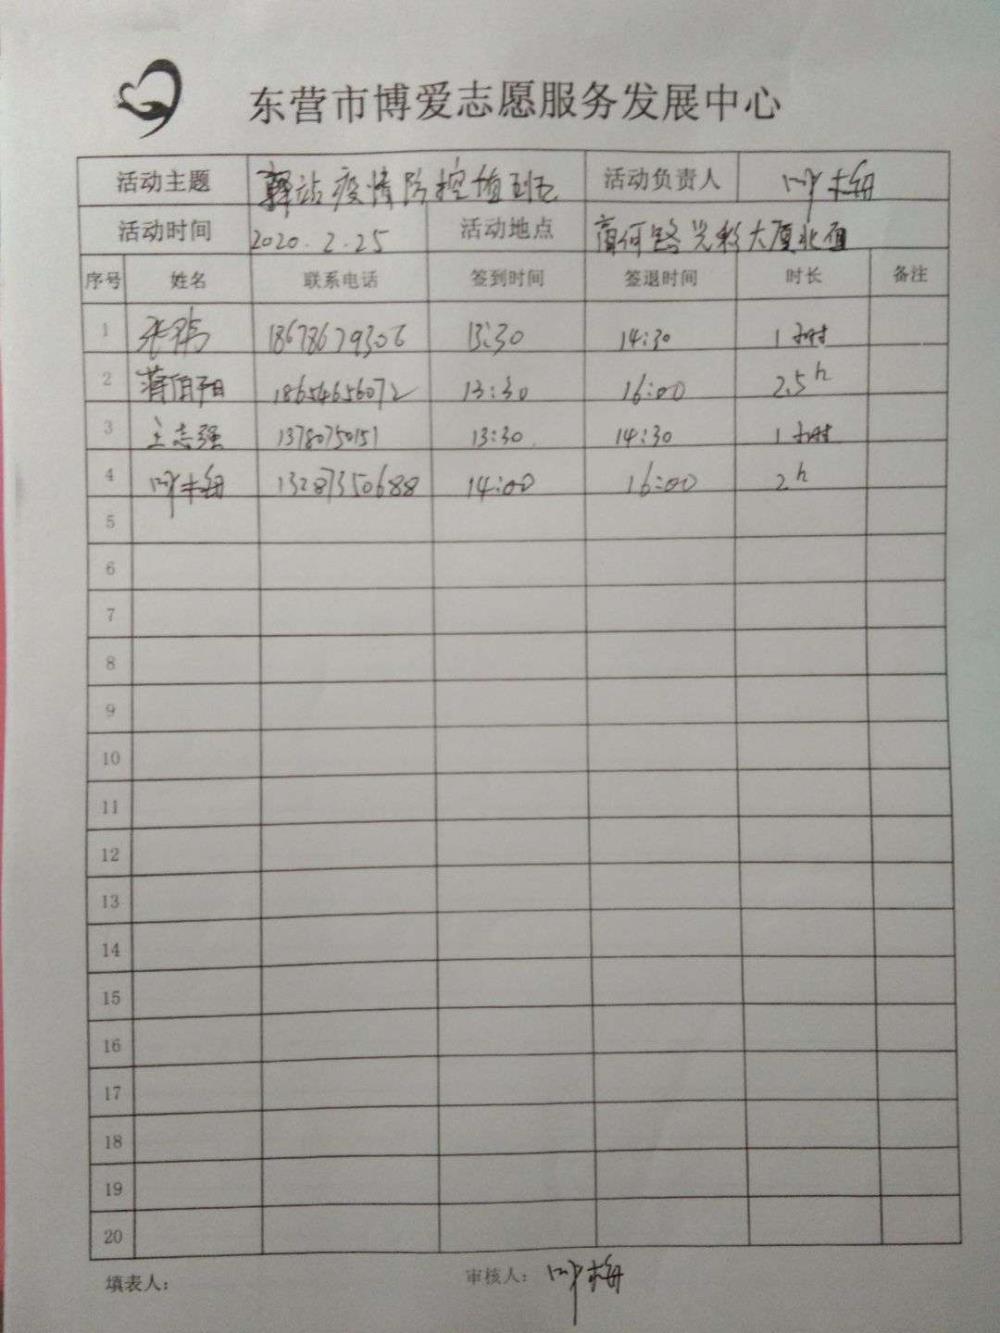 东营市博爱志愿服务发展中心
活动主题 驿站疫情防控值班 活动负责人 叶梅
活动时间 2020.2.25 活动地点 商河路光彩大厦北
序号 姓名 联系电话 签到时间 签退时间 时长 备注
1 张伟 18678679306 13:30 14:30 1小时
2 蒋伯阳 18654656072 13:30 16:00 2.5h
3 王志强 1378075015 13:30 14:30 1小时
4 叶梅 13287350688 14:00 16:00 2h
5
6
7
8
9
10
11
12
13
14
15
16
17
18
19
20
填表人： 审核人： 叶梅